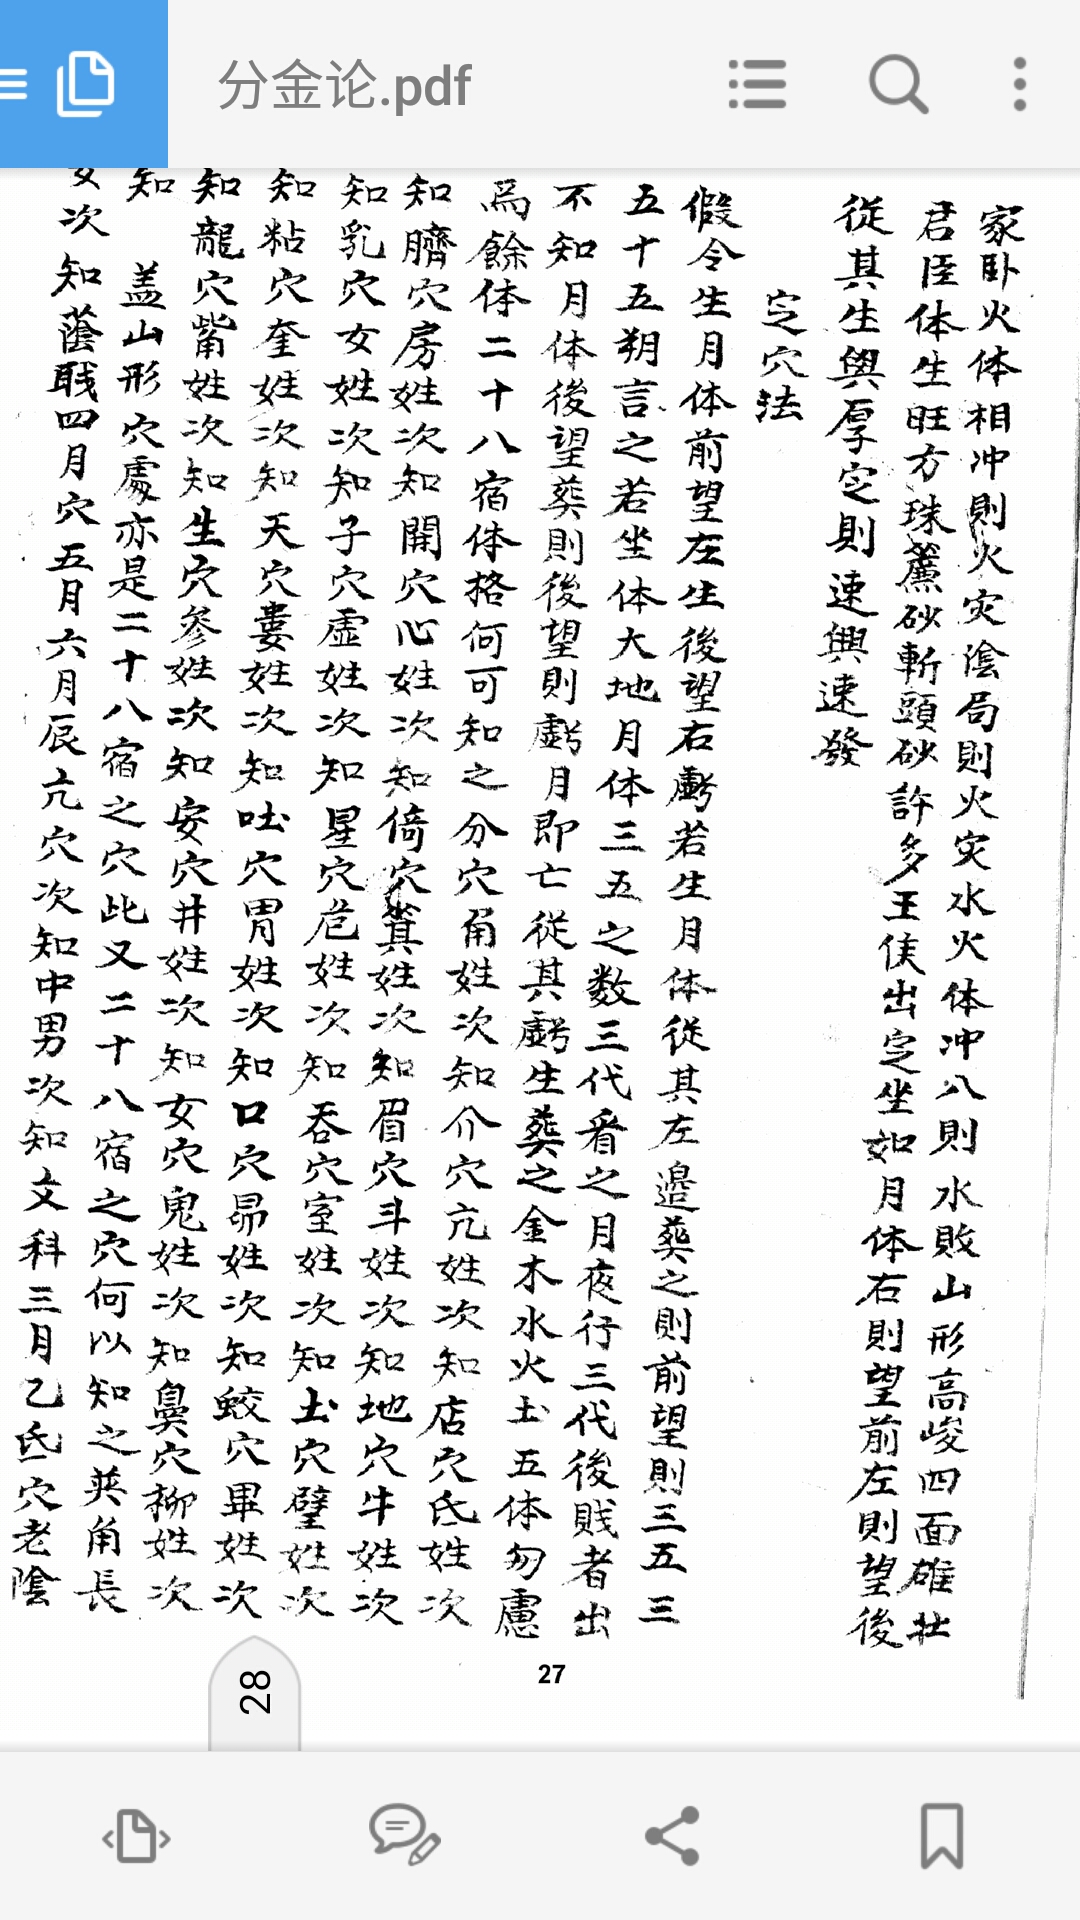 分金论.pdf
家卧火体相冲則火灾陰局則火灾水火体冲八則水敗山形高峻四面雄壯
君臣体生旺方珠簾砂斬頭砂許多王侯出定坐如月体右則望前左則望後
從其生與厚定則速興速發
定穴法
假令生月体前望左生後望右虧若生月体從其左邉葵之則前望則三五三
五十五朔言之若坐体大地月体三五之数三代看之月夜行三代後賤者出
不知月体後望葵則後望則虧月即亡從其虧生葵之金木水火土五体勿慮
爲餘体二十八宿体格何可知之分穴角姓次知介穴亢姓次知店穴氐姓次
知臍穴房姓次知開穴心姓次知倚穴箕姓次知眉穴斗姓次知地穴牛姓次
知乳穴女姓次知子穴虛姓次知星穴危姓次知吞穴室姓次知土穴壁姓次
知粘穴奎姓次知天穴婁姓次知吐穴胃姓次知口穴昴姓次知蛟穴畢姓次
知龍穴觜姓次知生穴參姓次知安穴井姓次知女穴鬼姓次知鼻穴柳姓次
知 盖山形穴處亦是二十八宿之穴此又二十八宿之穴何以知之英角長
女次知蔭職四月穴五月六月辰亢穴次知中男次知文科三月乙氐穴老陰
27
28